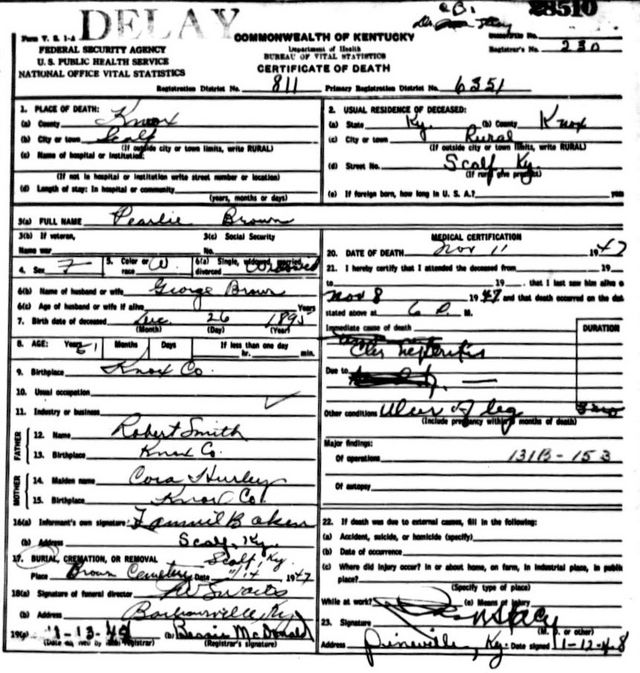 DELAY
28510
Form V. S. 1-A
FEDERAL SECURITY AGENCY
U. S. PUBLIC HEALTH SERVICE
NATIONAL OFFICE VITAL STATISTICS
COMMONWEALTH OF KENTUCKY
Department of Health
BUREAU OF VITAL STATISTICS
CERTIFICATE OF DEATH
Registrar's No. 230
Registration District No. 811 Primary Registration District No. 6351
1. PLACE OF DEATH:
(a) County Knox
(b) City or town Scalf
(If outside city or town limits, write RURAL)
(c) Name of hospital or institution:
(If not in hospital or institution write street number or location)
(d) Length of stay: In hospital or community
(years, months or days)
2. USUAL RESIDENCE OF DECEASED:
(a) State Ky. (b) County Knox
(c) City or town Rural
(If outside city or town limits, write RURAL)
(d) Street No. Scalf Ky.
(If rural give precinct)
(e) If foreign born, how long in U. S. A.? (years)
3(a) FULL NAME Pearlie Brown
3(b) If veteran,
Name war
3(c) Social Security
No.
4. Sex F 5. Color or race W 6(a) Single, widowed, married, divorced Widowed
6(b) Name of husband or wife George Brown
6(c) Age of husband or wife if alive Years
7. Birth date of deceased Dec 26 1895
(Month) (Day) (Year)
8. AGE: Years 51 Months Days If less than one day
hr. min.
9. Birthplace Knox Co.
10. Usual occupation
11. Industry or business
FATHER
12. Name Robert Smith
13. Birthplace Knox Co.
MOTHER
14. Maiden name Cora Hurley
15. Birthplace Knox Co.
16(a) Informant's own signature
(b) Address Scalf, Ky.
17. BURIAL, CREMATION, OR REMOVAL Scalf, Ky.
Place Brown Cemetery Date 11/14 1947
18(a) Signature of funeral director
(b) Address Barbourville, Ky
19(a) 11-13-48 (b) Bessie McDonald
(Date rec'd by local registrar) (Registrar's signature)
MEDICAL CERTIFICATION
20. DATE OF DEATH Nov 11 1947
21. I hereby certify that I attended the deceased from 19
to 19 , that I last saw him alive on
Nov 8 1947 and that death occurred on the date
stated above at 6 P. M.
Immediate cause of death
DURATION
Due to
Other conditions Ulcer of leg
(Include pregnancy within 3 months of death)
Major findings:
Of operations 131B-153
Of autopsy
22. If death was due to external causes, fill in the following:
(a) Accident, suicide, or homicide (specify)
(b) Date of occurrence
(c) Where did injury occur? In or about home, on farm, in industrial place, in public
place?
(Specify type of place)
While at work? (e) Means of injury
23. Signature
(M. D. or other)
Address Pineville, Ky. Date signed 11-12-48